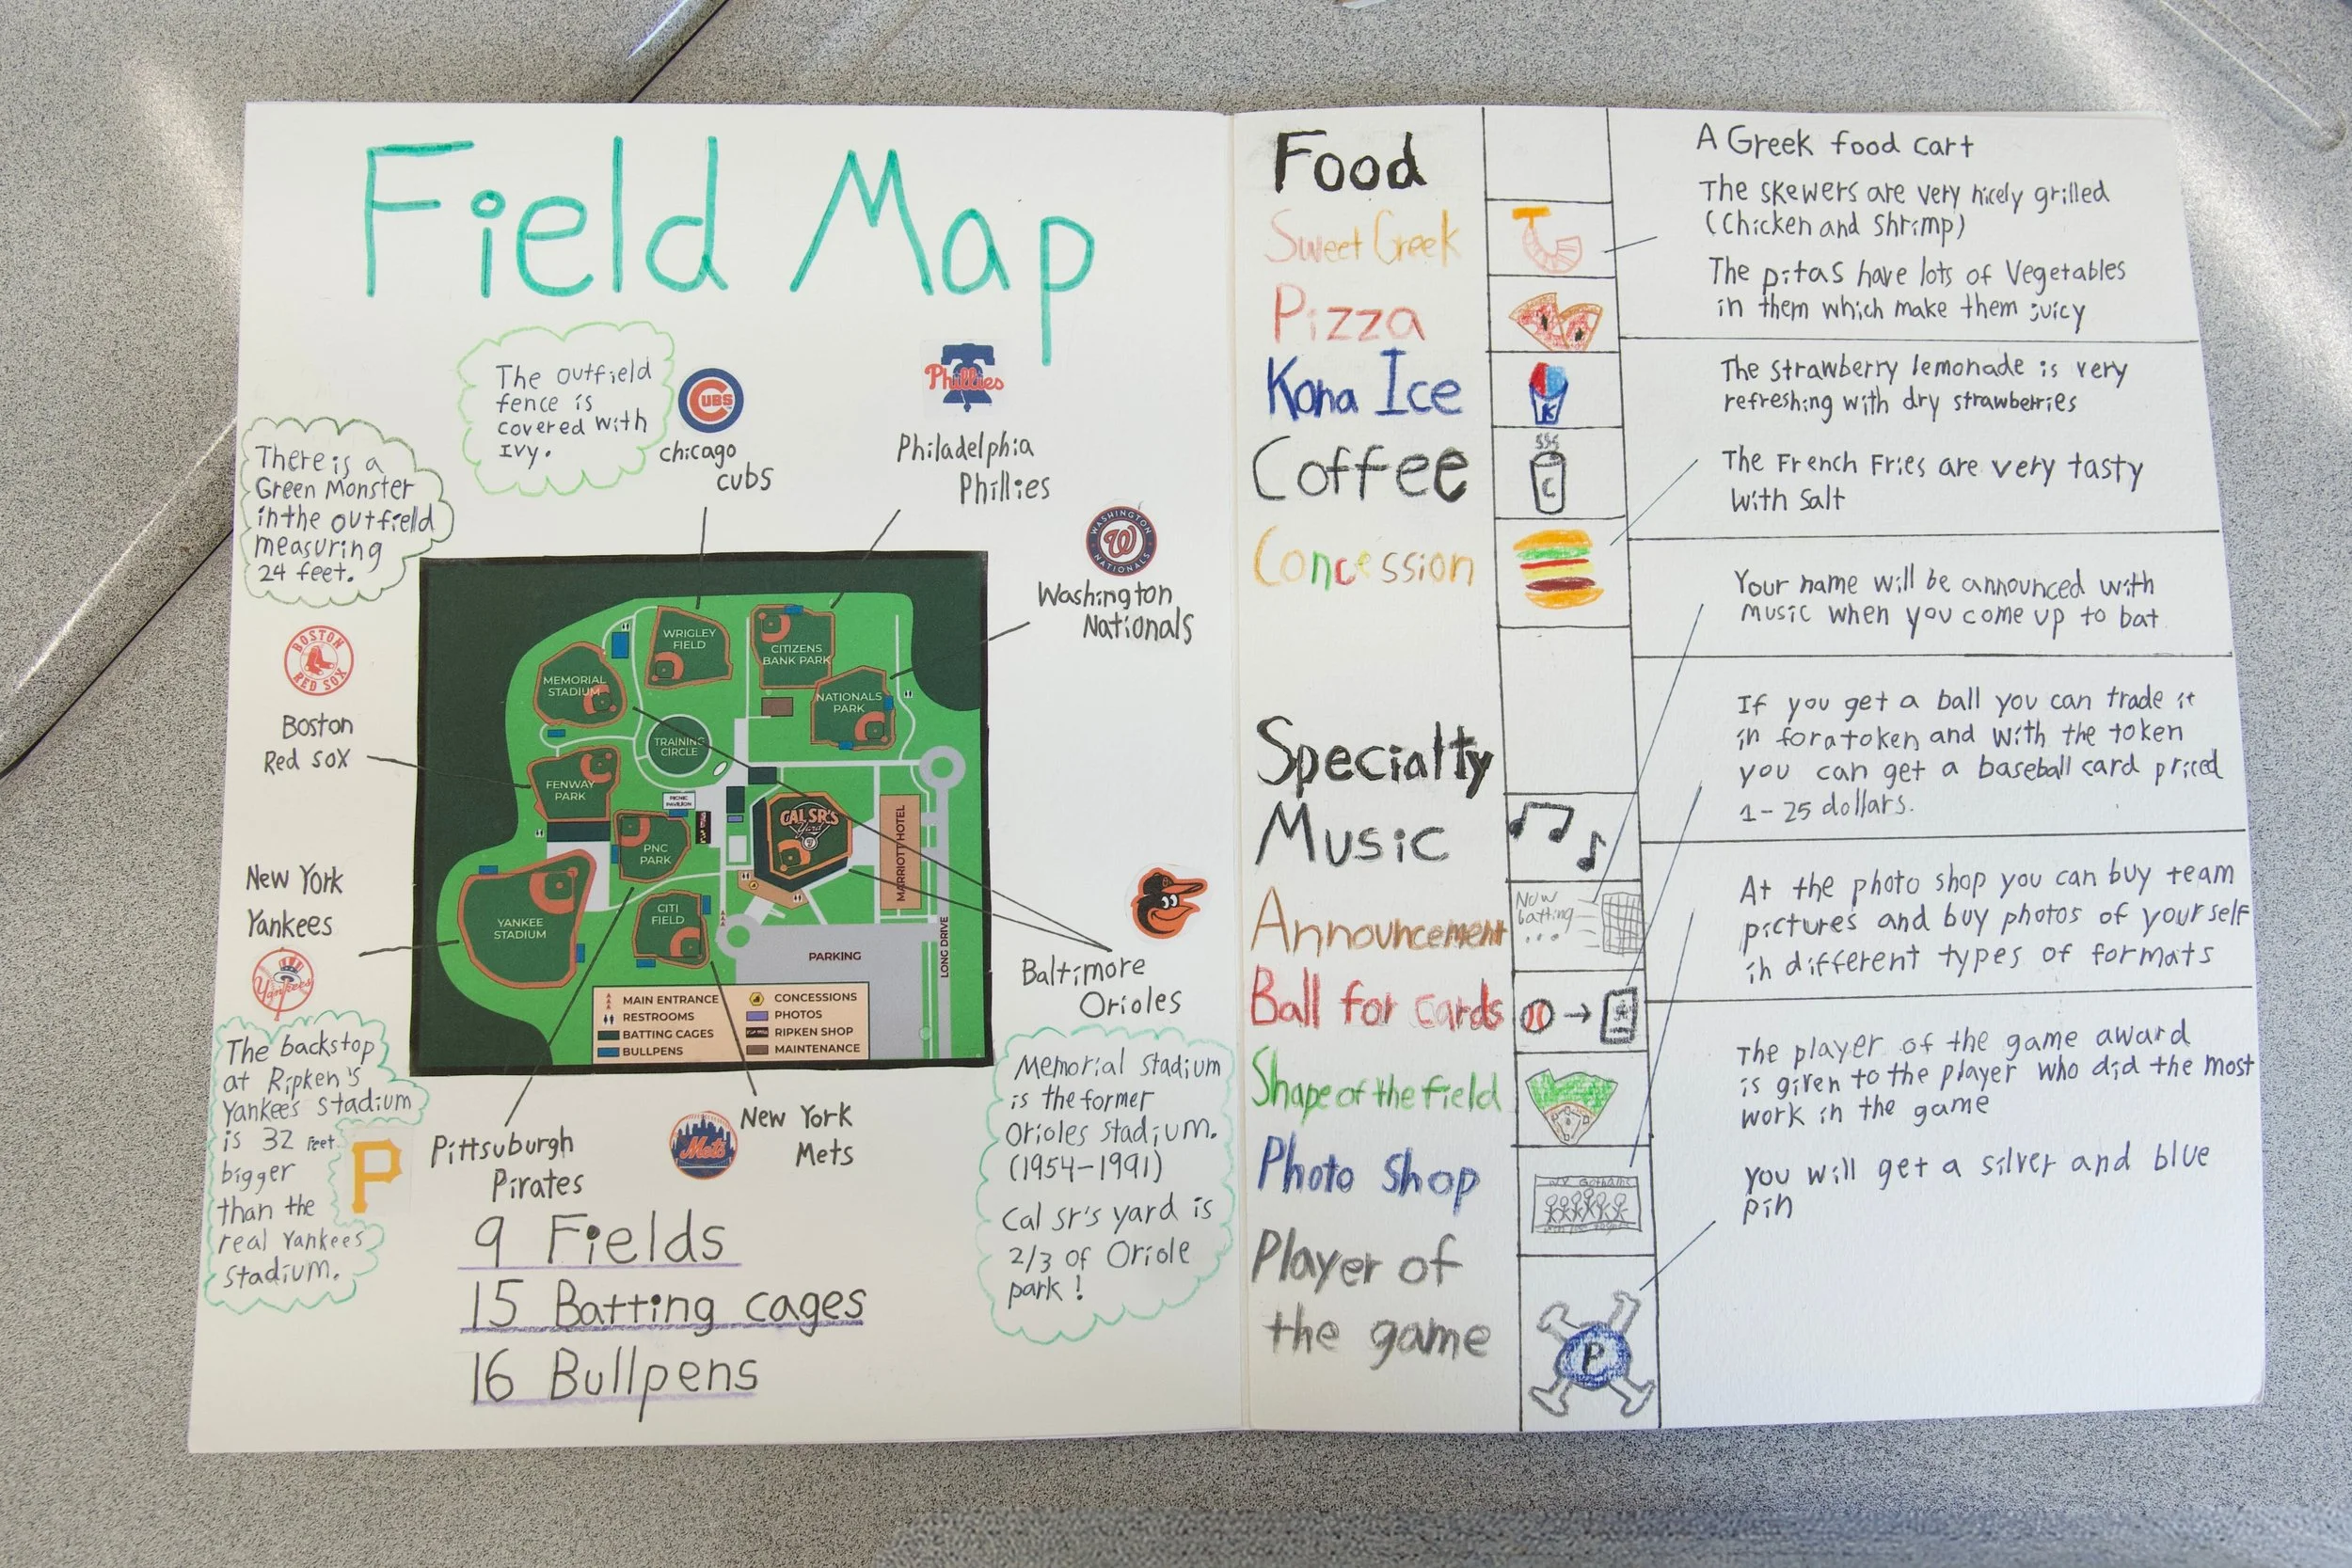 Field Map
The outfield
fence is
covered with
Ivy.
CUBS
chicago
cubs
Phillies
Philadelphia
Phillies
There is a
Green Monster
in the outfield
measuring
24 feet.
WASHINGTON
W
NATIONALS
Washington
Nationals
BOSTON
RED SOX
Boston
Red sox
New York
Yankees
Yankees
WRIGLEY
FIELD
CITIZENS
BANK PARK
MEMORIAL
STADIUM
NATIONALS
PARK
TRAINING
CIRCLE
FENWAY
PARK
PICNIC
PAVILION
CAL SR'S
Yard
PNC
PARK
MARRIOTT HOTEL
CITI
FIELD
YANKEE
STADIUM
PARKING
LONG DRIVE
MAIN ENTRANCE
RESTROOMS
BATTING CAGES
BULLPENS
CONCESSIONS
PHOTOS
RIPKEN SHOP
MAINTENANCE
Baltimore
Orioles
The backstop
at Ripken's
Yankees stadium
is 32 feet
bigger
than the
real Yankees
Stadium.
P
Pittsuburgh
Pirates
Mets
New York
Mets
Memorial stadium
is the former
Orioles stadium.
(1954-1991)
Cal sr's yard is
2/3 of Oriole
park!
9 Fields
15 Batting cages
16 Bullpens
Food
Sweet Greek
Pizza
Kona Ice
K
Coffee
C
Concession
Specialty
Music
Announcement
Now
batting
...
Ball for cards
Shape of the field
Photo shop
Player of
the game
P
A Greek food cart
The skewers are very nicely grilled
(Chicken and Shrimp)
The pitas have lots of Vegetables
in them which make them juicy
The strawberry lemonade is very
refreshing with dry strawberries
The French Fries are very tasty
with Salt
Your name will be announced with
music when you come up to bat
If you get a ball you can trade it
in for a token and with the token
you can get a baseball card priced
1-25 dollars.
At the photo shop you can buy team
pictures and buy photos of yourself
in different types of formats
The player of the game award
is given to the player who did the most
work in the game
you will get a silver and blue
pin